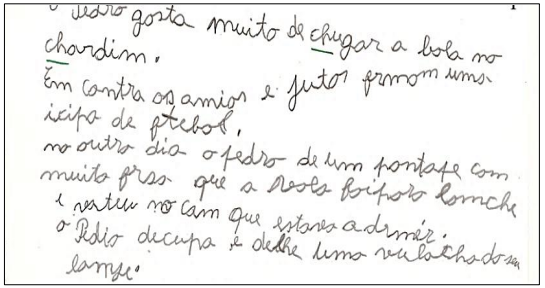 o Pedro gosta muito de chugar a bola no
chardim.
Em contra os amios e jutos frmom uma
icipa de ftebol.
no outro dia o pedro de um pontafe com
muita frsa que a bola foi para lomche
e vateu no cam que estava a drmér.
o Pedio decupa e delhe uma vulacha do seu
lamxe.